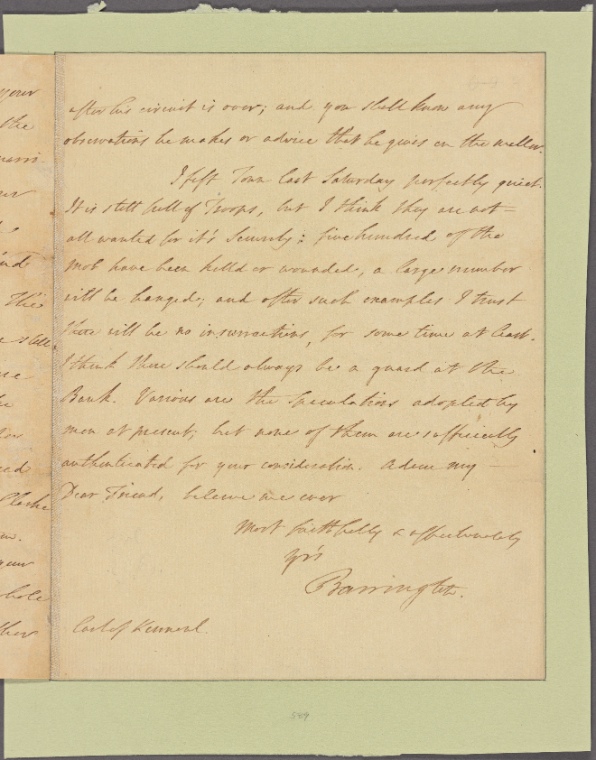 your
the
after his circuit is over; and you shall know any
observations he makes or advice that he gives on the matter.
I left Town last Saturday perfectly quiet.
It is still full of Troops, but I think they are not
all wanted for it's Security: five hundred of the
Mob have been killd or wounded, a large number
will be hanged; and after such examples I trust
there will be no insurrections, for some time at least.
I think there should always be a guard at the
Bank. Various are the Speculations adopted by
men at present; but none of them are sufficiently
authenticated for your consideration. Adieu my
Dear Friend, believe me ever
Most faithfully & affectionately
Yrs
Barrington.
Earl of Kinnoul